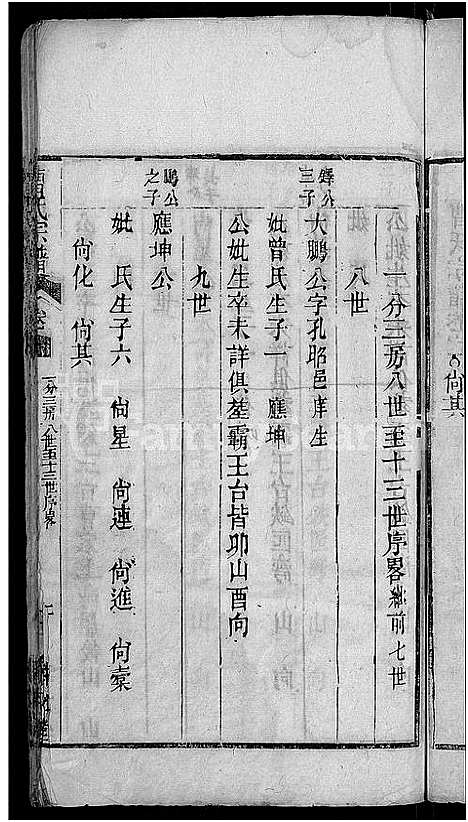 尙其
一分三房八世至十三世序畧繼前七世
八世
鐸公三子
大鵬公字孔昭邑庠生
妣曾氏生子一 應坤
公妣生卒未詳俱塟霸王台皆卯山酉向
九世
鵬公之子
應坤公
妣 氏生子六 尙星 尙連 尙進 尙棠
尙化 尙其
氏宗譜 卷
一分三房八世至十三世序畧